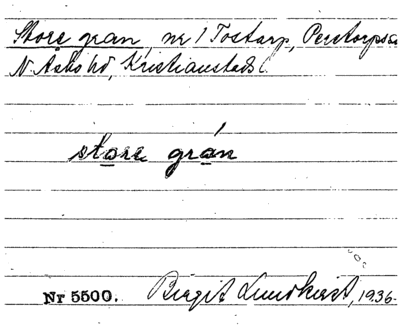 Store gran, nr 1 Tostarp, Perstorps s
N. Åsbo hd, Kristianstads l.
store grán
Nr 5500. Birgit Lundkvist, 1936.